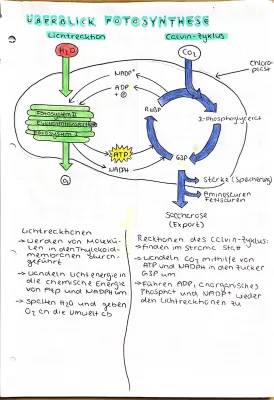 ÜBERBLICK FOTOSYNTHESE
Lichtreaktion
Calvin-Zyklus
H₂O
CO₂
Chloroplast
NADP⁺
ADP
+ P
RuBP
3-Phosphoglycerat
Fotosystem II
Fotosystem I
ATP
NADPH
G3P
O₂
Stärke (Speicherung)
Aminosäuren
Fettsäuren
Saccharose
(Export)
Lichtreaktionen
→ werden von Molekü-
len in den Thylakoid-
membranen durch-
geführt
→ wandeln Lichtenergie in
die chemische Energie
von ATP und NADPH um
→ spalten H₂O und geben
O₂ an die Umwelt ab
Reaktionen des Calvin-Zyklus:
→ finden im Stroma statt
→ wandeln CO₂ mithilfe von
ATP und NADPH in den Zucker
G3P um
→ führen ADP, anorganisches
Phosphat und NADP⁺ wieder
den Lichtreaktionen zu